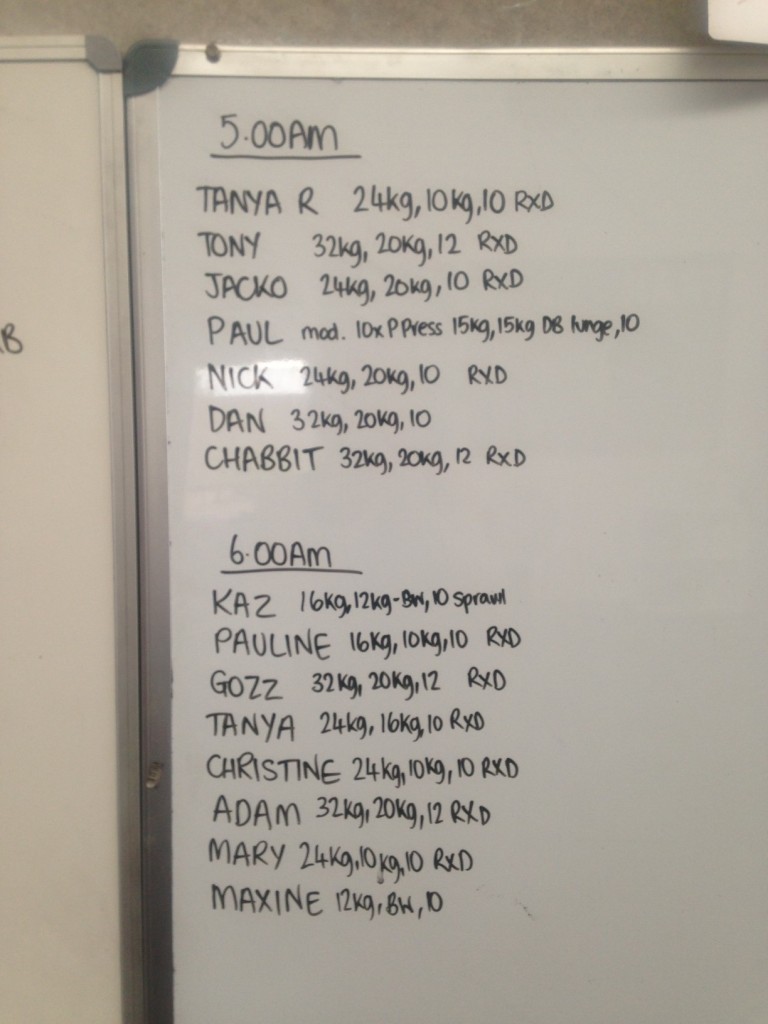 B
5.00Am
TANYA R 24kg, 10kg, 10 RXD
TONY 32kg, 20kg, 12 RXD
JACKO 24kg, 20kg, 10 RXD
PAUL mod. 10x P Press 15kg, 15kg DB lunge, 10
NICK 24kg, 20kg, 10 RXD
DAN 32kg, 20kg, 10
CHABBIT 32kg, 20kg, 12 RXD
6.00Am
KAZ 16kg, 12kg-BW, 10 sprawl
PAULINE 16kg, 10kg, 10 RXD
GOZZ 32kg, 20kg, 12 RXD
TANYA 24kg, 16kg, 10 RXD
CHRISTINE 24kg, 10kg, 10 RXD
ADAM 32kg, 20kg, 12 RXD
MARY 24kg, 10kg, 10 RXD
MAXINE 12kg, BW, 10